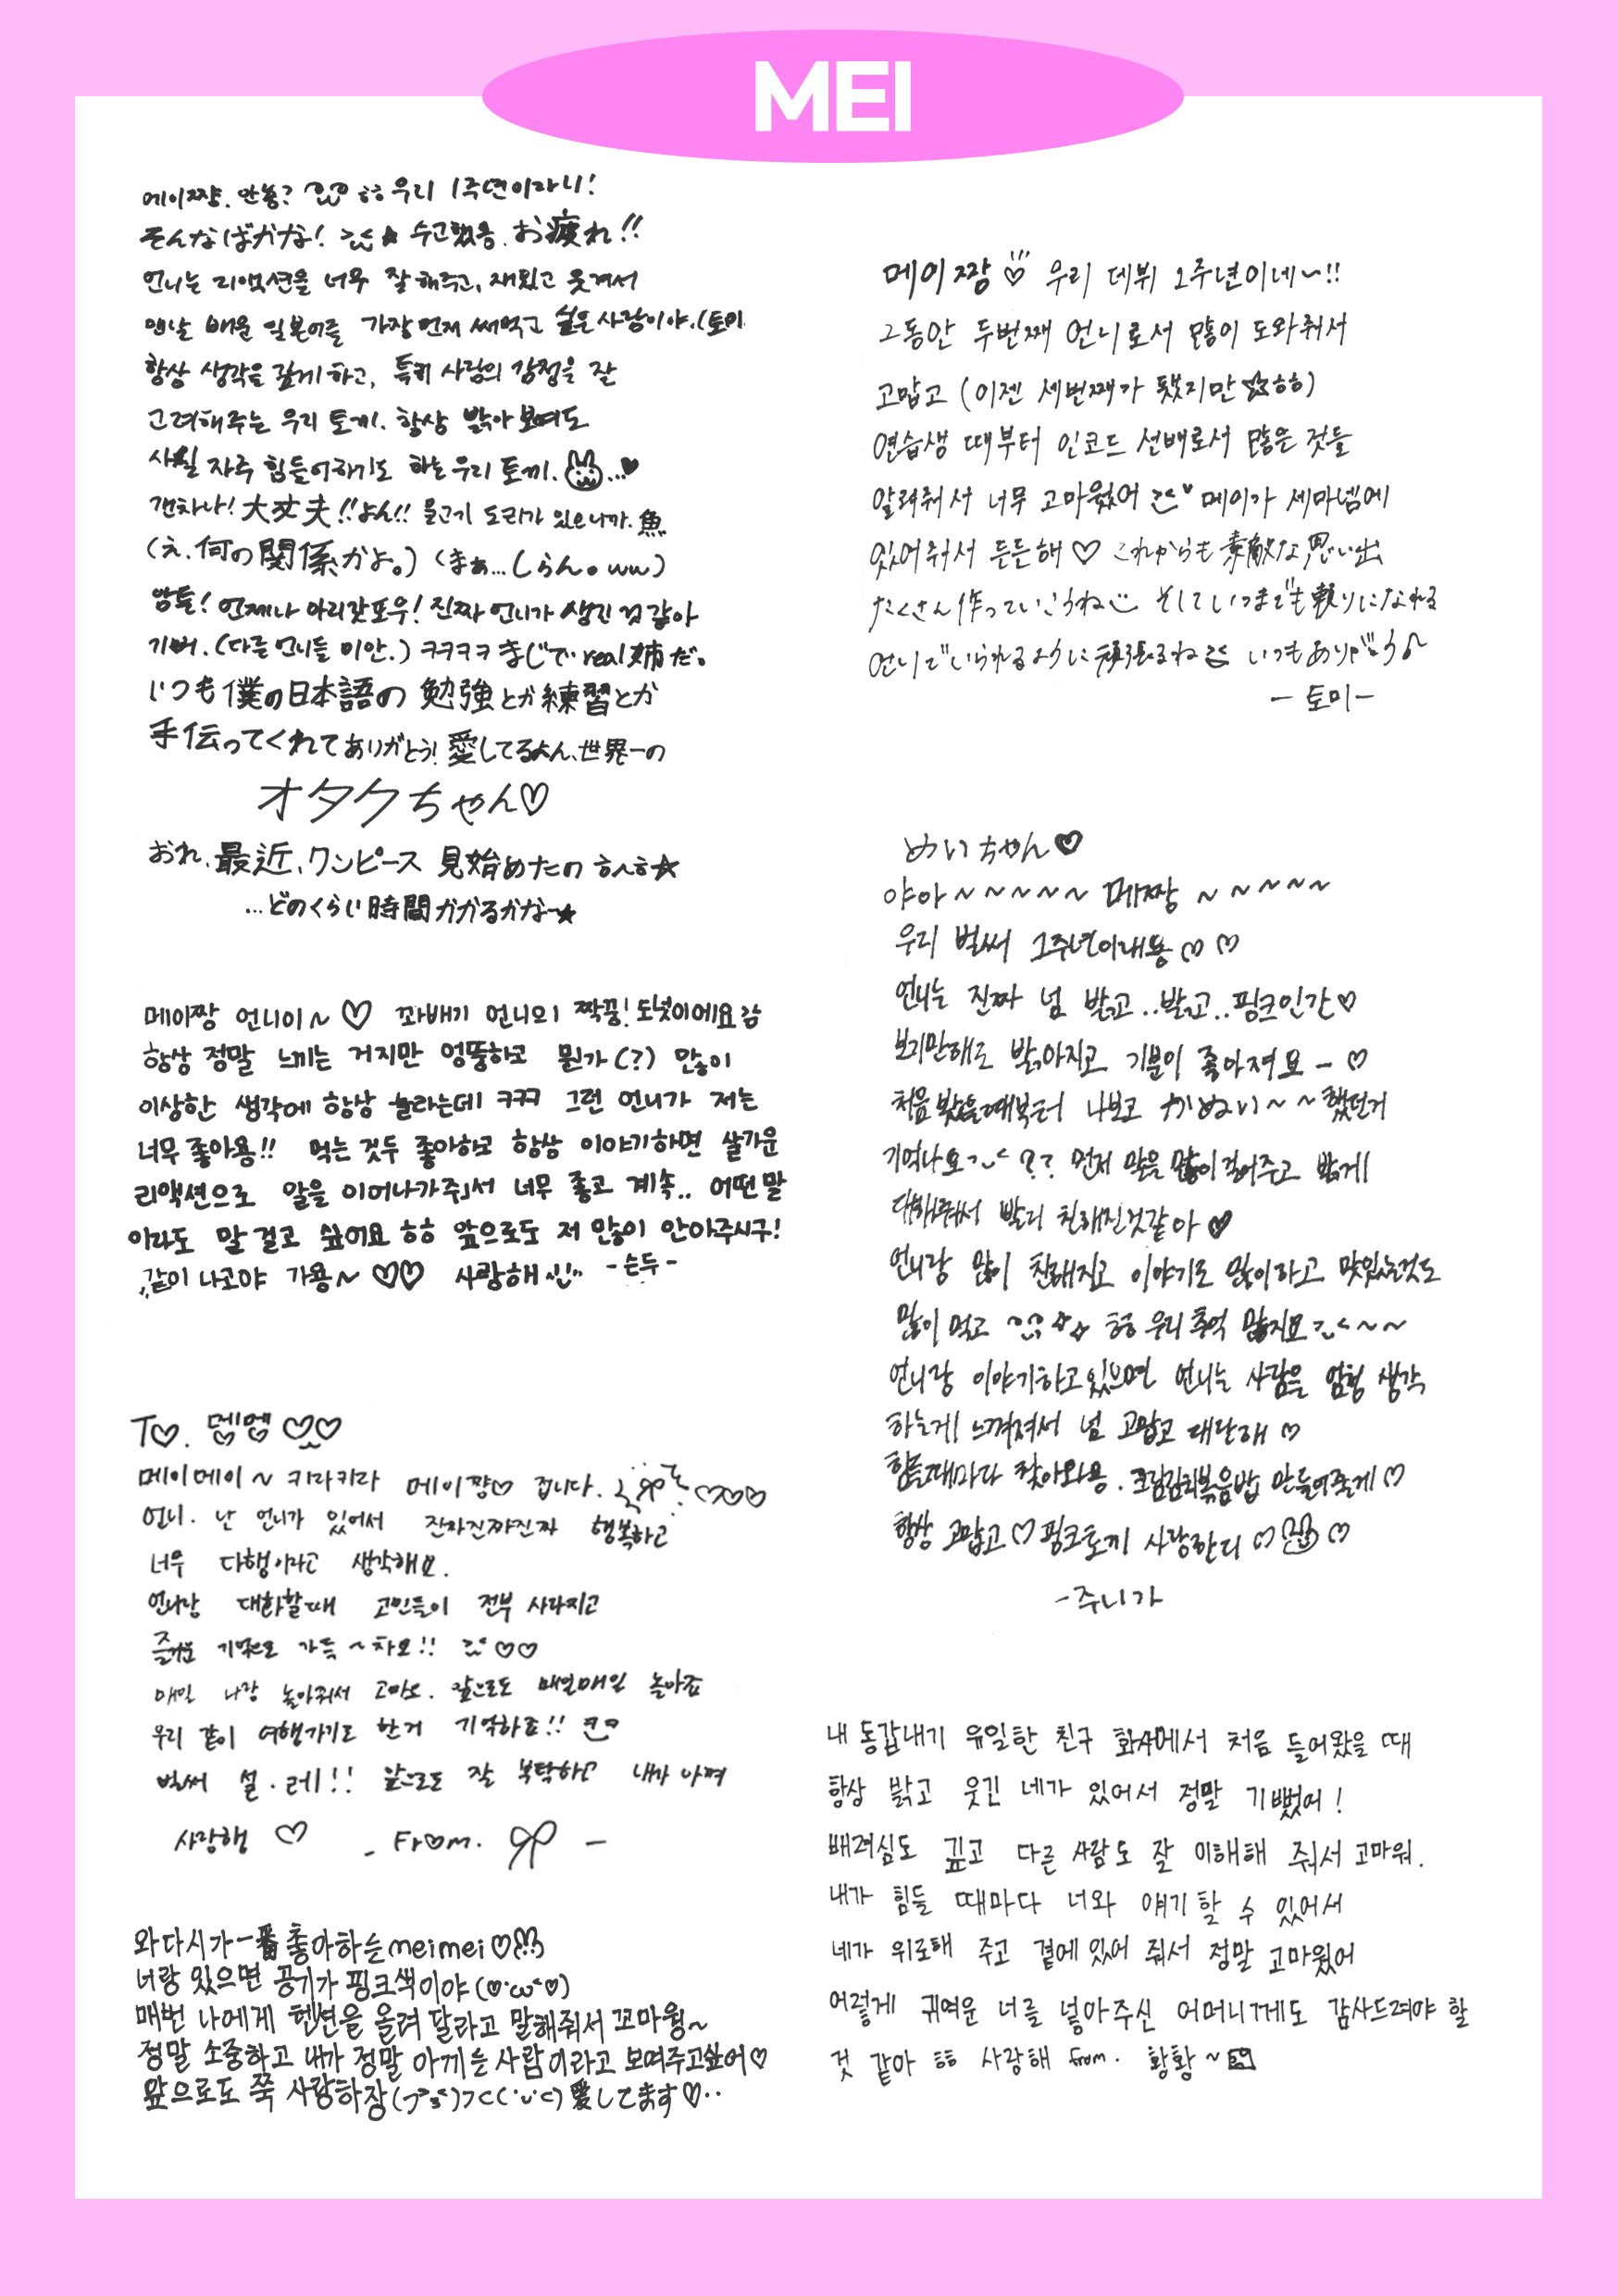 MEI
메이쨩. 안뇽? ㅎㅎ 우리 1주년이라니!
そんなばかな! ☆ 수고했옹. お疲れ!!
언니는 리액션을 너무 잘 해주고, 재밌고 웃겨서
맨날 배운 일본어를 가장 먼저 써먹고 싶은 사람이야. (토미
항상 생각을 깊게 하고, 특히 사람의 감정을 잘
고려해주는 우리 토끼. 항상 밝아 보여도
사실 자주 힘들어하기도 하는 우리 토끼. ...♥
갠차나! 大丈夫!!よん!! 물고기 도리가 있으니까. 魚
(え、何の関係かよ。) (まぁ...しらん。ww)
암튼! 언제나 아리갓또우! 진짜 언니가 생긴 것 같아
기뻐. (다른 언니들 미안.) ㅋㅋㅋㅋ まじで real 姉だ。
いつも僕の日本語の 勉強とか練習とか
手伝ってくれてありがとう! 愛してるよん、世界一の
オタクちゃん♡
おれ、最近、ワンピース 見始めたの ㅎㅅㅎ☆
...どのくらい時間かかるかな~★
메이짱 언니이~ ♡ 꽈배기 언니의 짝꿍! 도넛이에요
항상 정말 느끼는 거지만 엉뚱하고 뭔가(?) 많이
이상한 생각에 항상 놀라는데 ㅋㅋㅋ 그런 언니가 저는
너무 좋아용!! 먹는 것두 좋아하고 항상 이야기하면 살가운
리액션으로 말을 이어나가줘서 너무 좋고 계속.. 어떤 말
이라도 말 걸고 싶어요 ㅎㅎ 앞으로도 저 많이 안아주시구!
같이 나고야 가용~ ♡♡ 사랑해 -슨두-
To. 멤멤 ♡♡
메이메이~ 키라키라 메이쨩♡ 입니다. ♡♡♡
언니. 난 언니가 있어서 진짜진짜진짜 행복하고
너무 다행이라고 생각해요.
언니랑 대화할때 고민들이 전부 사라지고
즐거운 기억으로 가득~차요!! ♡♡
매일 나랑 놀아줘서 고마오. 앞으로도 매일매일 놀아죠
우리 같이 여행가기로 한거 기억하죠!!
벌써 설.레!! 앞으로도 잘 부탁하고 내가 아껴
사랑행 ♡ - From. -
와다시가 一番 좋아하는 meimei♡
너랑 있으면 공기가 핑크색이야 (♡'ω'♡)
매번 나에게 텐션을 올려 달라고 말해줘서 꼬마웡~
정말 소중하고 내가 정말 아끼는 사람이라고 보여주고싶어♡
앞으로도 쭉 사랑하장 愛してます♡..
메이짱♡ 우리 데뷔 1주년이네~!!
그동안 두번째 언니로서 많이 도와줘서
고맙고 (이젠 세번째가 됐지만 ☆ㅎㅎ)
연습생 때부터 인코드 선배로서 많은 것들
알려줘서 너무 고마웠어 메이가 세마넴에
있어줘서 든든해♡ これからも素敵な思い出
たくさん作っていこうね そしていつまでも頼りになれる
언니でいられるように頑張るね いつもありがとう♪
-토미-
めいちゃん♥
야아~~~~~ 메짱 ~~~~~
우리 벌써 1주년이내용 ♡♡
언니는 진짜 넘 밝고..밝고..핑크인간♡
보기만해도 밝아지고 기분이 좋아져요-♡
처음 봤을때부터 나보고 かわいい~~했던거
기억나요 ?? 먼저 말을 많이 걸어주고 밝게
대해줘서 빨리 친해진것같아♥
언니랑 많이 친해지고 이야기도 많이하고 맛있는것도
많이 먹고 ☆☆ ㅎㅎ 우리 추억 많지요 ~~
언니랑 이야기하고있으면 언니는 사람을 엄청 생각
하는게 느껴져서 넘 고맙고 대단해♡
힘들때마다 찾아와용. 크림김치볶음밥 만들어줄게♡
항상 고맙고♡핑크토끼 사랑한디♡ ♡
-주니가
내 동갑내기 유일한 친구 회사에서 처음 들어왔을 때
항상 밝고 웃긴 네가 있어서 정말 기뻤어!
배려심도 깊고 다른 사람도 잘 이해해 줘서 고마워.
내가 힘들 때마다 너와 얘기할 수 있어서
네가 위로해 주고 곁에 있어 줘서 정말 고마웠어
어렇게 귀여운 너를 낳아주신 어머니께도 감사드려야 할
것 같아 ㅎㅎ 사랑해 from. 황황~